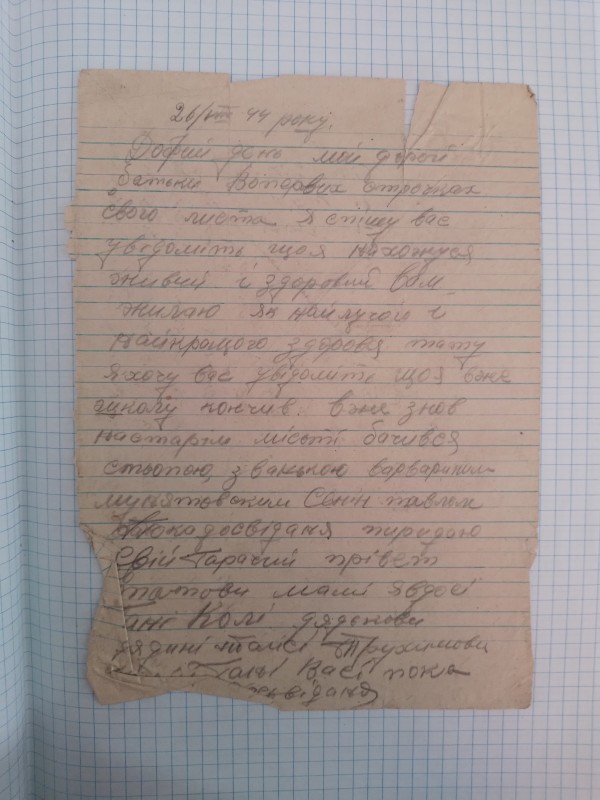 26/VIII 44 року.
Добрий день мої дорогі
батьки Вопервих строчках
свого листа я спішу вас
увідоміть щоя нахожуся
живий і здоровий Вам
желаю як найлучой і
найкращого здоровя тату
я хочу вас увідоміть щоя вже
школу кончив. вже знов
настарім місьті бачився
стьопою, з ванькою варвариним
Сеньй павлом
Покадосвіданя передаю
Свій Гарачий прівет
татови мамі явдосі
Гані Колі дядькови
дядині Талсі Трухимови
Гані Васі пока